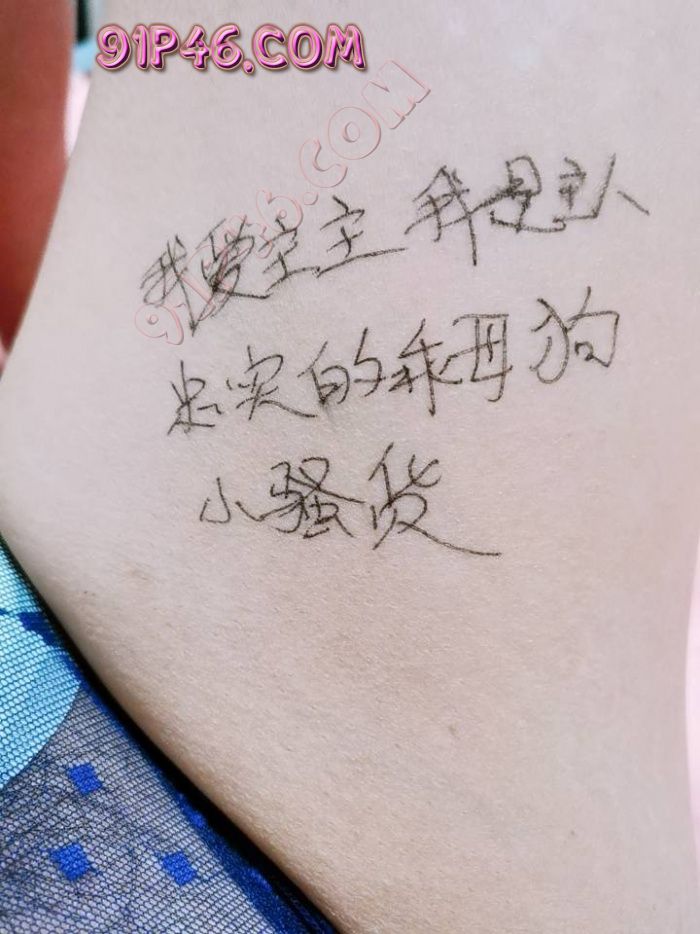 91P46.COM
91P46.COM
我爱主主 我是主人
忠实的我母狗
小骚货